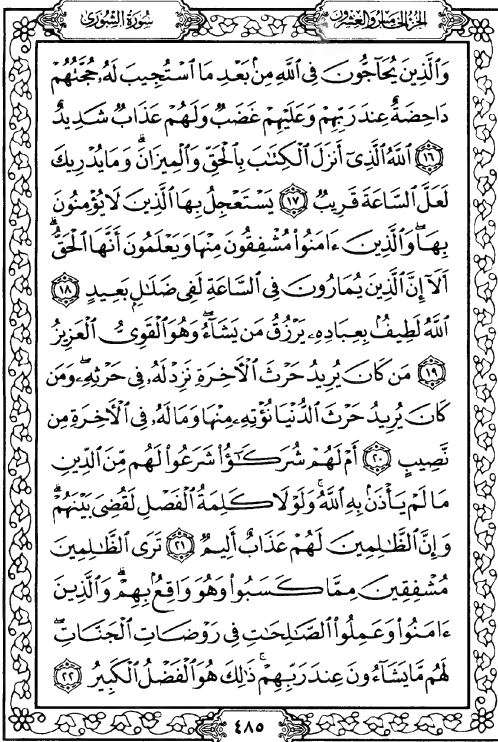 الجزء الخامس والعشرون
سورة الشورى
وَٱلَّذِينَ يُحَآجُّونَ فِى ٱللَّهِ مِنۢ بَعْدِ مَا ٱسْتُجِيبَ لَهُۥ حُجَّتُهُمْ
دَاحِضَةٌ عِندَ رَبِّهِمْ وَعَلَيْهِمْ غَضَبٌ وَلَهُمْ عَذَابٌ شَدِيدٌ
١٦ ٱللَّهُ ٱلَّذِىٓ أَنزَلَ ٱلْكِتَٰبَ بِٱلْحَقِّ وَٱلْمِيزَانَ ۗ وَمَا يُدْرِيكَ
لَعَلَّ ٱلسَّاعَةَ قَرِيبٌ ١٧ يَسْتَعْجِلُ بِهَا ٱلَّذِينَ لَا يُؤْمِنُونَ
بِهَا ۖ وَٱلَّذِينَ ءَامَنُوا۟ مُشْفِقُونَ مِنْهَا وَيَعْلَمُونَ أَنَّهَا ٱلْحَقُّ ۗ
أَلَآ إِنَّ ٱلَّذِينَ يُمَارُونَ فِى ٱلسَّاعَةِ لَفِى ضَلَٰلٍۭ بَعِيدٍ ١٨
ٱللَّهُ لَطِيفٌۢ بِعِبَادِهِۦ يَرْزُقُ مَن يَشَآءُ ۖ وَهُوَ ٱلْقَوِىُّ ٱلْعَزِيزُ
١٩ مَن كَانَ يُرِيدُ حَرْثَ ٱلْءَاخِرَةِ نَزِدْ لَهُۥ فِى حَرْثِهِۦ ۖ وَمَن
كَانَ يُرِيدُ حَرْثَ ٱلدُّنْيَا نُؤْتِهِۦ مِنْهَا وَمَا لَهُۥ فِى ٱلْءَاخِرَةِ مِن
نَّصِيبٍ ٢٠ أَمْ لَهُمْ شُرَكَٰٓؤُا۟ شَرَعُوا۟ لَهُم مِّنَ ٱلدِّينِ
مَا لَمْ يَأْذَنۢ بِهِ ٱللَّهُ ۚ وَلَوْلَا كَلِمَةُ ٱلْفَصْلِ لَقُضِىَ بَيْنَهُمْ ۗ
وَإِنَّ ٱلظَّٰلِمِينَ لَهُمْ عَذَابٌ أَلِيمٌ ٢١ تَرَى ٱلظَّٰلِمِينَ
مُشْفِقِينَ مِمَّا كَسَبُوا۟ وَهُوَ وَاقِعٌۢ بِهِمْ ۗ وَٱلَّذِينَ
ءَامَنُوا۟ وَعَمِلُوا۟ ٱلصَّٰلِحَٰتِ فِى رَوْضَاتِ ٱلْجَنَّاتِ ۖ
لَهُم مَّا يَشَآءُونَ عِندَ رَبِّهِمْ ۚ ذَٰلِكَ هُوَ ٱلْفَضْلُ ٱلْكَبِيرُ ٢٢
٤٨٥